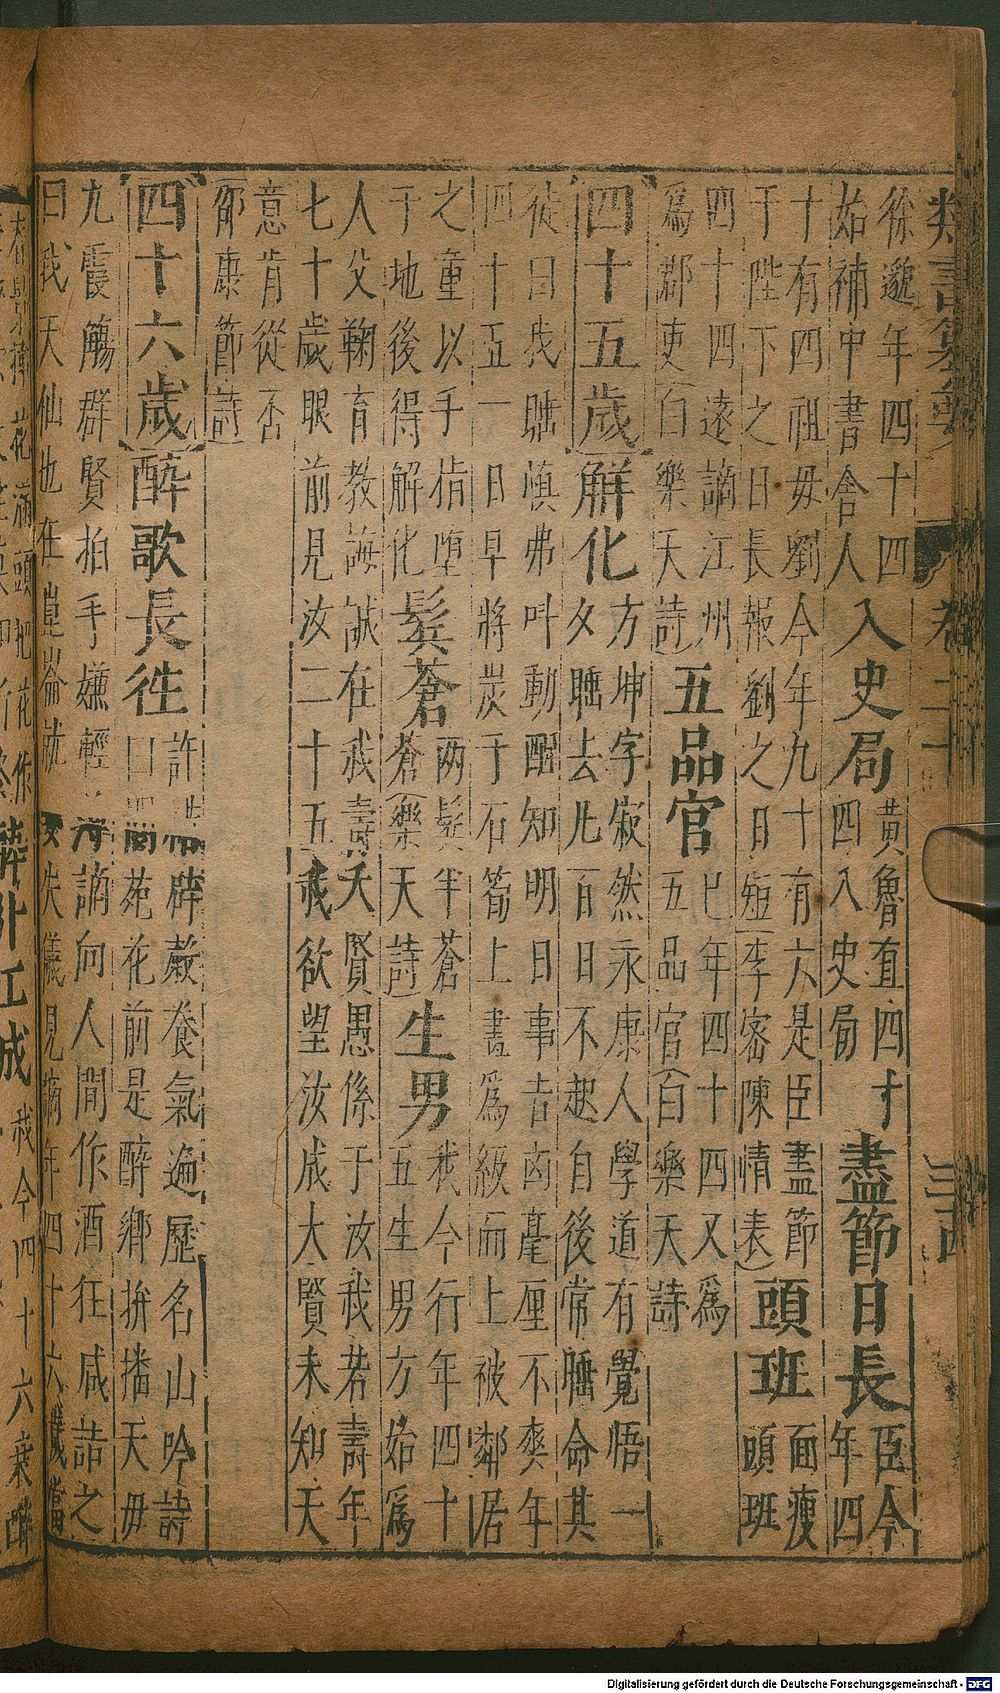 類書纂要 卷二十 三十四
徐邈年四十四
始補中書舍人
入史局
黃魯直四十
四入史局
盡節日長
臣今
年四
十有四祖母劉今年九十有六是臣盡節
于陛下之日長報劉之日短(李密陳情表)
頭班
面瘦
頭班
四十四遠謫江州
為郡吏(白樂天詩
五品官
巳年四十四又為
五品官(白樂天詩
四十五歲
觧化
方坤字寂然永康人學道有覺悟一
夕睡去凡百日不起自後常睡命其
徒曰我睡慎弗呌動醒知明日事吉凶毫厘不爽年
四十五一日早將炭于石筍上畫為級而上被鄰居
之童以手指墮
于地後得解化
鬂蒼
两髩半蒼
蒼(樂天詩)
生男
我今行年四十
五生男方始為
人父鞠育教誨誠在我壽夭賢愚係于汝我若壽年
七十歲眼前見汝二十五我欲望汝成大賢未知天
意肯從否
邵康節詩
四十六歲
醉歌長徃
許 辟穀養氣遍歷名山吟詩
曰閬苑花前是醉鄉拚播天毋
九霞觴群賢拍手嫌輕 謫向人間作酒狂咸詰之
曰我天仙也在崑崙就 失儀見謫年四十六歲當
花滿頭把花作
江城
我今四十六衰
Digitalisierung gefördert durch die Deutsche Forschungsgemeinschaft - DFG